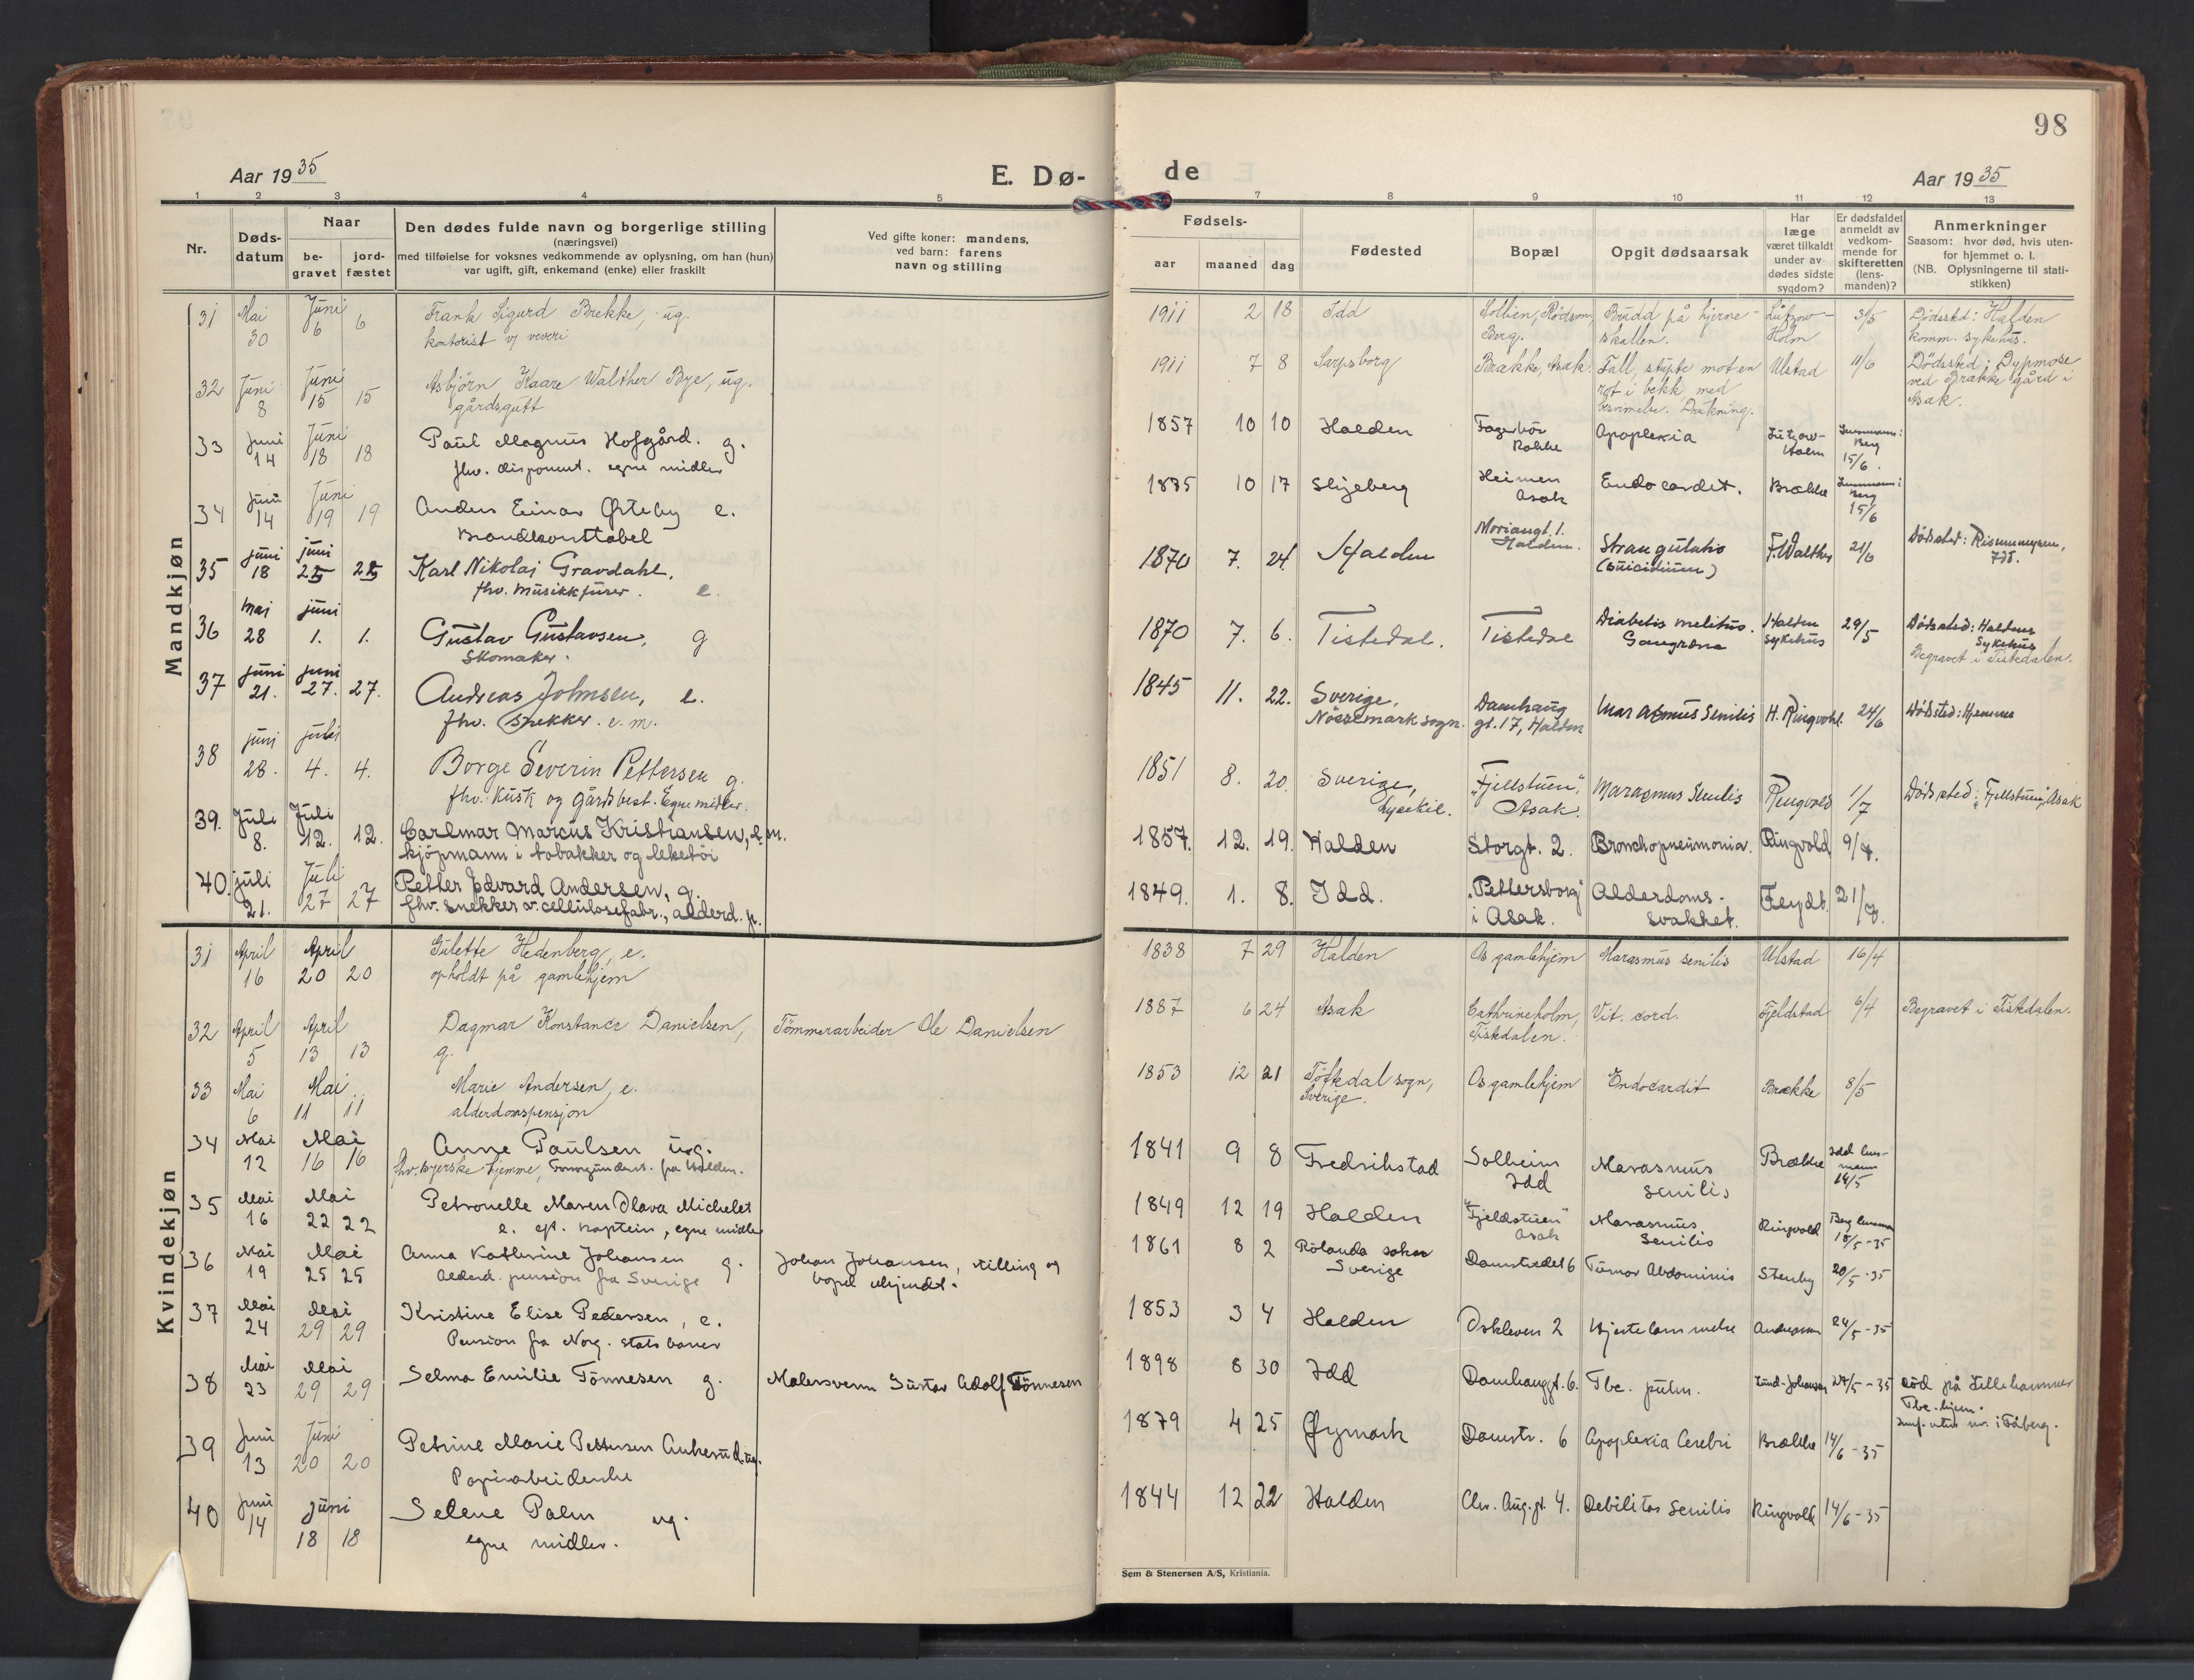 98
Aar 1935
E. Dø-
de
Aar 1935
1 2 3 4 5
7 8 9 10 11 12 13
Nr.
Døds-
datum
Naar
be-
gravet
jord-
fæstet
Den dødes fulde navn og borgerlige stilling
(næringsvei)
med tilføielse for voksnes vedkommende av oplysning, om han (hun)
var ugift, gift, enkemand (enke) eller fraskilt
Ved gifte koner: mandens,
ved barn: farens
navn og stilling
Fødsels-
aar maaned dag
Fødested
Bopæl
Opgit dødsaarsak
Har
læge
været tilkaldt
under av-
dødes sidste
sygdom?
Er dødsfaldet
anmeldt av
vedkom-
mende for
skifteretten
(lens-
manden)?
Anmerkninger
Saasom: hvor død, hvis uten-
for hjemmet o. l.
(NB. Oplysningerne til stati-
stikken)
Mandkjøn
31 Mai 30 Juni 6 6 Frank Sigurd Brekke, ug.
kontorist v/ veveri
1911 2 18 Idd
Berg.
Brudd på hjerne-
skallen.
Lützow-
Holm
3/5
Dødssted: Halden
komm. sykehus.
32 Juni 8 Juni 15 15 Asbjörn Kaare Walther Bye, ug.
gårdsgutt
1911 7 8 Sarpsborg
Brække, Asak.
Fall, stupte mot en
rot i bekk med
besvimelse. Drukning.
Ulstad
11/6
Dødssted: Dypmose
ved Brække gård i
Asak.
33 Juni 14 Juni 18 18 Paul Magnus Hofgård. g.
fhv. disponent. egne midler
1857 10 10 Halden
Fagerhöi
Rokke
Apoplexia
Lützow-
Holm
Lensmann i
Berg
15/6.
34 Juni 14 Juni 19 19 Anders Einar Østeby e.
Brandkonstabel
1875 10 17 Skjeberg
Heimen
Asak
Endocardit.
Brække
Lensmann i
Berg
15/6
35 juni 18 juni 25 25 Karl Nikolai Gravdahl.
fhv. musikkfürer. e.
1870 7. 24. Halden
Halden.
Strangulatio
(Suicidium)
F. Walther
21/6
Dødssted:
Idd.
36 mai 28 juni 1. 1. Gustav Gustavsen, g
Skomaker.
1870 7. 6. Tistedal.
Tistedal
Diabetis melitus.
Gangræna
Halden
sykehus
29/5
Dødssted: Haldens
Sykehus
Begravet i Tistedalen.
37 juni 21. juni 27. 27. Andreas Johnsen, e.
fhv. Snekker. e. m.
1845 11. 22. Sverige,
Nössemark sogn.
Damhaug
gt. 17, Halden
Marasmus Senilis
H. Ringvold.
24/6
Dødssted: Hjemme
38 juni 28. juli 4. 4. Borge Severin Pettersen g.
fhv. kusk og gårdsbest. Egne midler.
1851 8. 20. Sverige,
Lysekil.
"Fjellstuen",
Asak.
Marasmus Senilis
Ringvold
1/7
Dødssted: "Fjellstuen", Asak
39. Juli 8. Juli 12. 12. Carlmar Marcus Kristiansen, e.m.
kjöpmann i tobakker og leketöi
1857. 12. 19. Halden
Storgt. 2.
Bronchopneumonia.
Ringvold
9/7.
40. juli 21. Juli 27 27 Petter Edvard Andersen, g.
fhv. snekker v. cellulosefabr., alderd. p.
1849. 1. 8. Idd.
"Pettersborg"
i Asak.
Alderdoms-
svakhet.
Feydt.
21/7.
Kvindekjøn
31 April 16 April 20 20 Gulette Hedenberg, e.
opholdt på gamlehjem
1838 7 29 Halden
Os gamlehjem
Marasmus senilis
Ulstad
16/4
32 April 5 April 13 13 Dagmar Konstance Danielsen,
g.
Tömmerarbeider Ole Danielsen
1887 6 24 Asak
Cathrineholm,
Tistedalen.
Vit. cord.
Fjeldstad
6/4
Begravet i Tistedalen.
33 Mai 6 Mai 11 11 Marie Andersen, e.
alderdomspensjon
1853 12 21 Töftedal sogn,
Sverige.
Os gamlehjem
Endocardit
Brække
8/5
34 Mai 12 Mai 16 16 Anne Paulsen ug.
fhv. syerske hjemme, Forsørgunderst. fra Halden.
1841 9 8 Fredrikstad
Solheim
Idd
Marasmus
senilis
Brække
Idd lens-
mann
14/5
35 Mai 16 Mai 22 22 Petronelle Maren Olava Michelet
e. eft. kaptein, egne midler
1849 12 19 Halden
"Fjeldstuen"
Asak
Marasmus
Senilis
Ringvold
Berg lensman
18/5-35
36 Mai 19 Mai 25 25 Anna Kathrine Johansen g.
Alderd. pension fra Sverige
Johan Johansen, stilling og
bopel ukjendt.
1861 8 2 Rölanda sokn
Sverige
Damstredet 6
Tumor Abdominis
Stenby
20/5-35
37 Mai 24 Mai 29 29 Kristine Elise Pedersen, e.
Pension fra Norg. statsbaner
1853 3 4 Halden
Oskleven 2
Hjertelammelse
Andersson
24/5-35
38 Mai 23 Mai 29 29 Selma Emilie Tönnesen g.
Malersvenn Gustav Adolf Tönnesen
1898 8 30 Idd
Damhauggt. 6.
Tbc. pulm.
Lund-Johansen
27/5-35
død på Lillehammer
Tbc. hjem.
39 Juni 13 Juni 20 20 Petrine Marie Pettersen Ankerud. ug.
Papirarbeiderske
1879 4 25 Øymark
Damstr. 6
Apoplexia Cerebri
Brække
14/6-35
40 Juni 14 juni 18 18 Selene Palm ug.
egne midler.
1844 12 22 Halden
Chr. Aug. gt. 4.
Debilitas Senilis
Ringvold
14/6-35
Sem & Stenersen A/S, Kristiania.